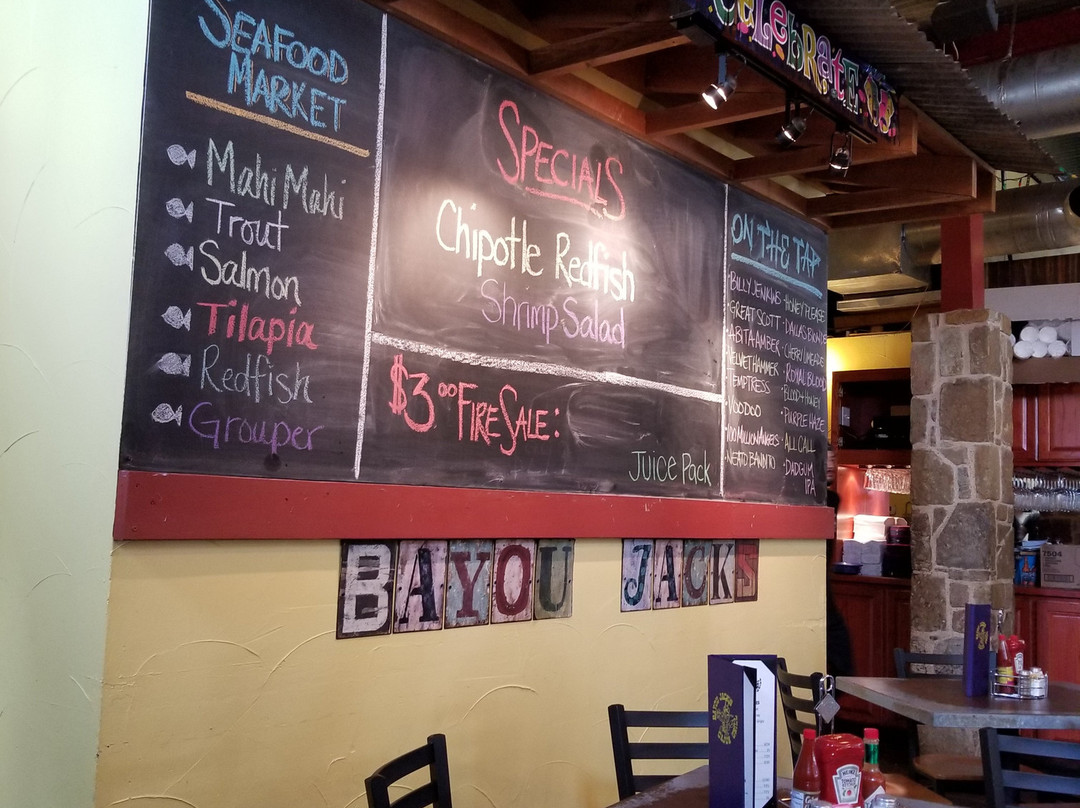 SEAFOOD
MARKET
Mahi Mahi
Trout
Salmon
Tilapia
Redfish
Grouper
SPECIALS
Chipotle Redfish
Shrimp Salad
$3.00 FIRE SALE:
Juice Pack
ON THE TAP
BILLY JENKINS
GREAT SCOTT
ABITA AMBER
VELVET HAMMER
TEMPTRESS
VOODOO
100 MILLION ANGELS
NEATO BANDITO
HONEY PLEASE
DALLAS BLONDE
CHERRY LIMEADE
ROYAL BLOOD
BLOOD & HONEY
PURPLE HAZE
ALL CALL
DADGUM
IPA
CELEbRatE
BAYOU JACKS
HEINZ
7504